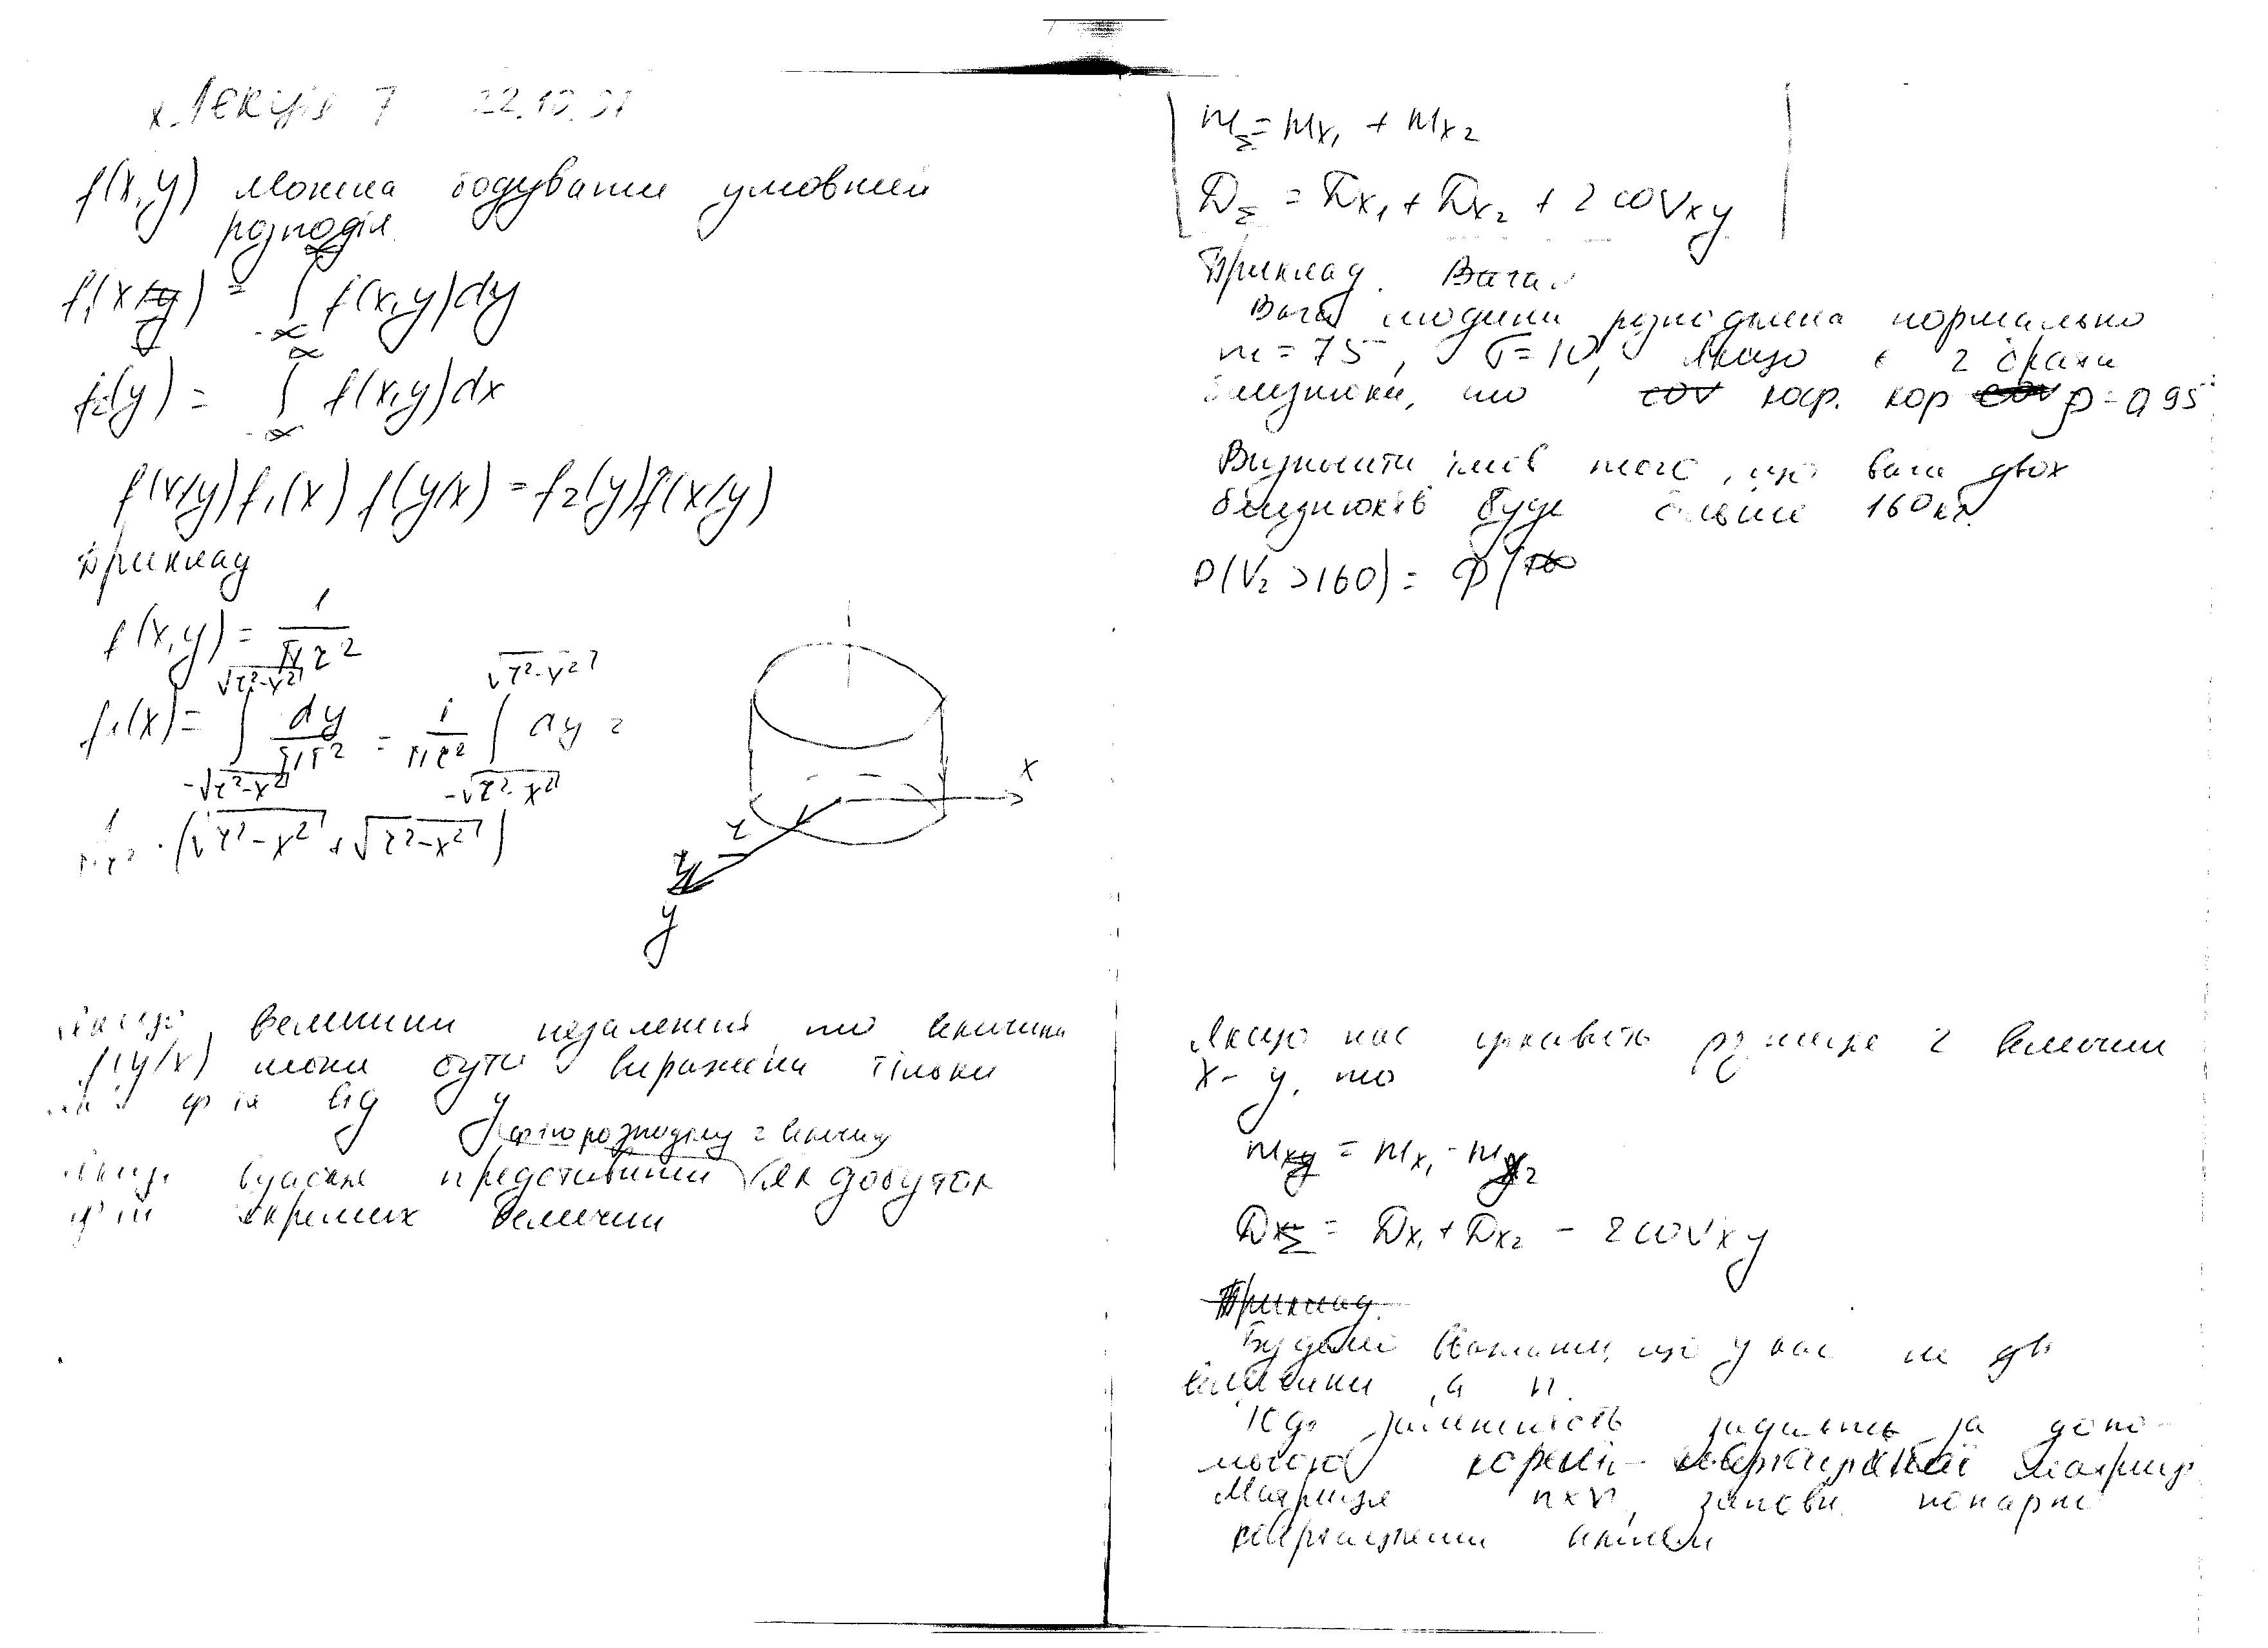 Лекція 7 22.10.01
f(x,y) можна будувати умовний
розподіл
f₁(x/y) = ∫ f(x,y)dy
∞
-∞
f₂(y) = ∫ f(x,y)dx
∞
-∞
f(x/y) f₁(x) f(y/x) = f₂(y) f(x/y)
Приклад
f(x,y) = 1/πr²
√r²-x² √r²-x²
f₁(x) = ∫ dy/πr² = 1/πr² ∫ dy =
-√r²-x² -√r²-x²
1/πr² · (√r²-x² + √r²-x²)
x
r
y
Якщо величини незалежні, то величина
f(y/x) може бути виражена тільки
від y
розподілу 2 величин
вдасться представити як добуток
окремих величин
mΣ = mx₁ + mx₂
DΣ = Dx₁ + Dx₂ + 2 cov xy
Приклад. Вага
Вага людини розподілена нормально
m = 75, σ = 10, Якщо є 2 брати
близнюки, то cov коєф. кор cov ρ = 0,95
Визначити імов того, що вага двох
близнюків буде більше 160 кг.
P(V₂ > 160) = Φ(
Якщо нас цікавить різниця 2 величин
x - y, то
mxy = mx₁ - mx₂
DxΣ = Dx₁ + Dx₂ - 2 cov xy
Приклад.
Будемо вважати, що у нас не дві
величини, а n.
залежність задають за допо-
могою матриці
Матриця n×n, попарні